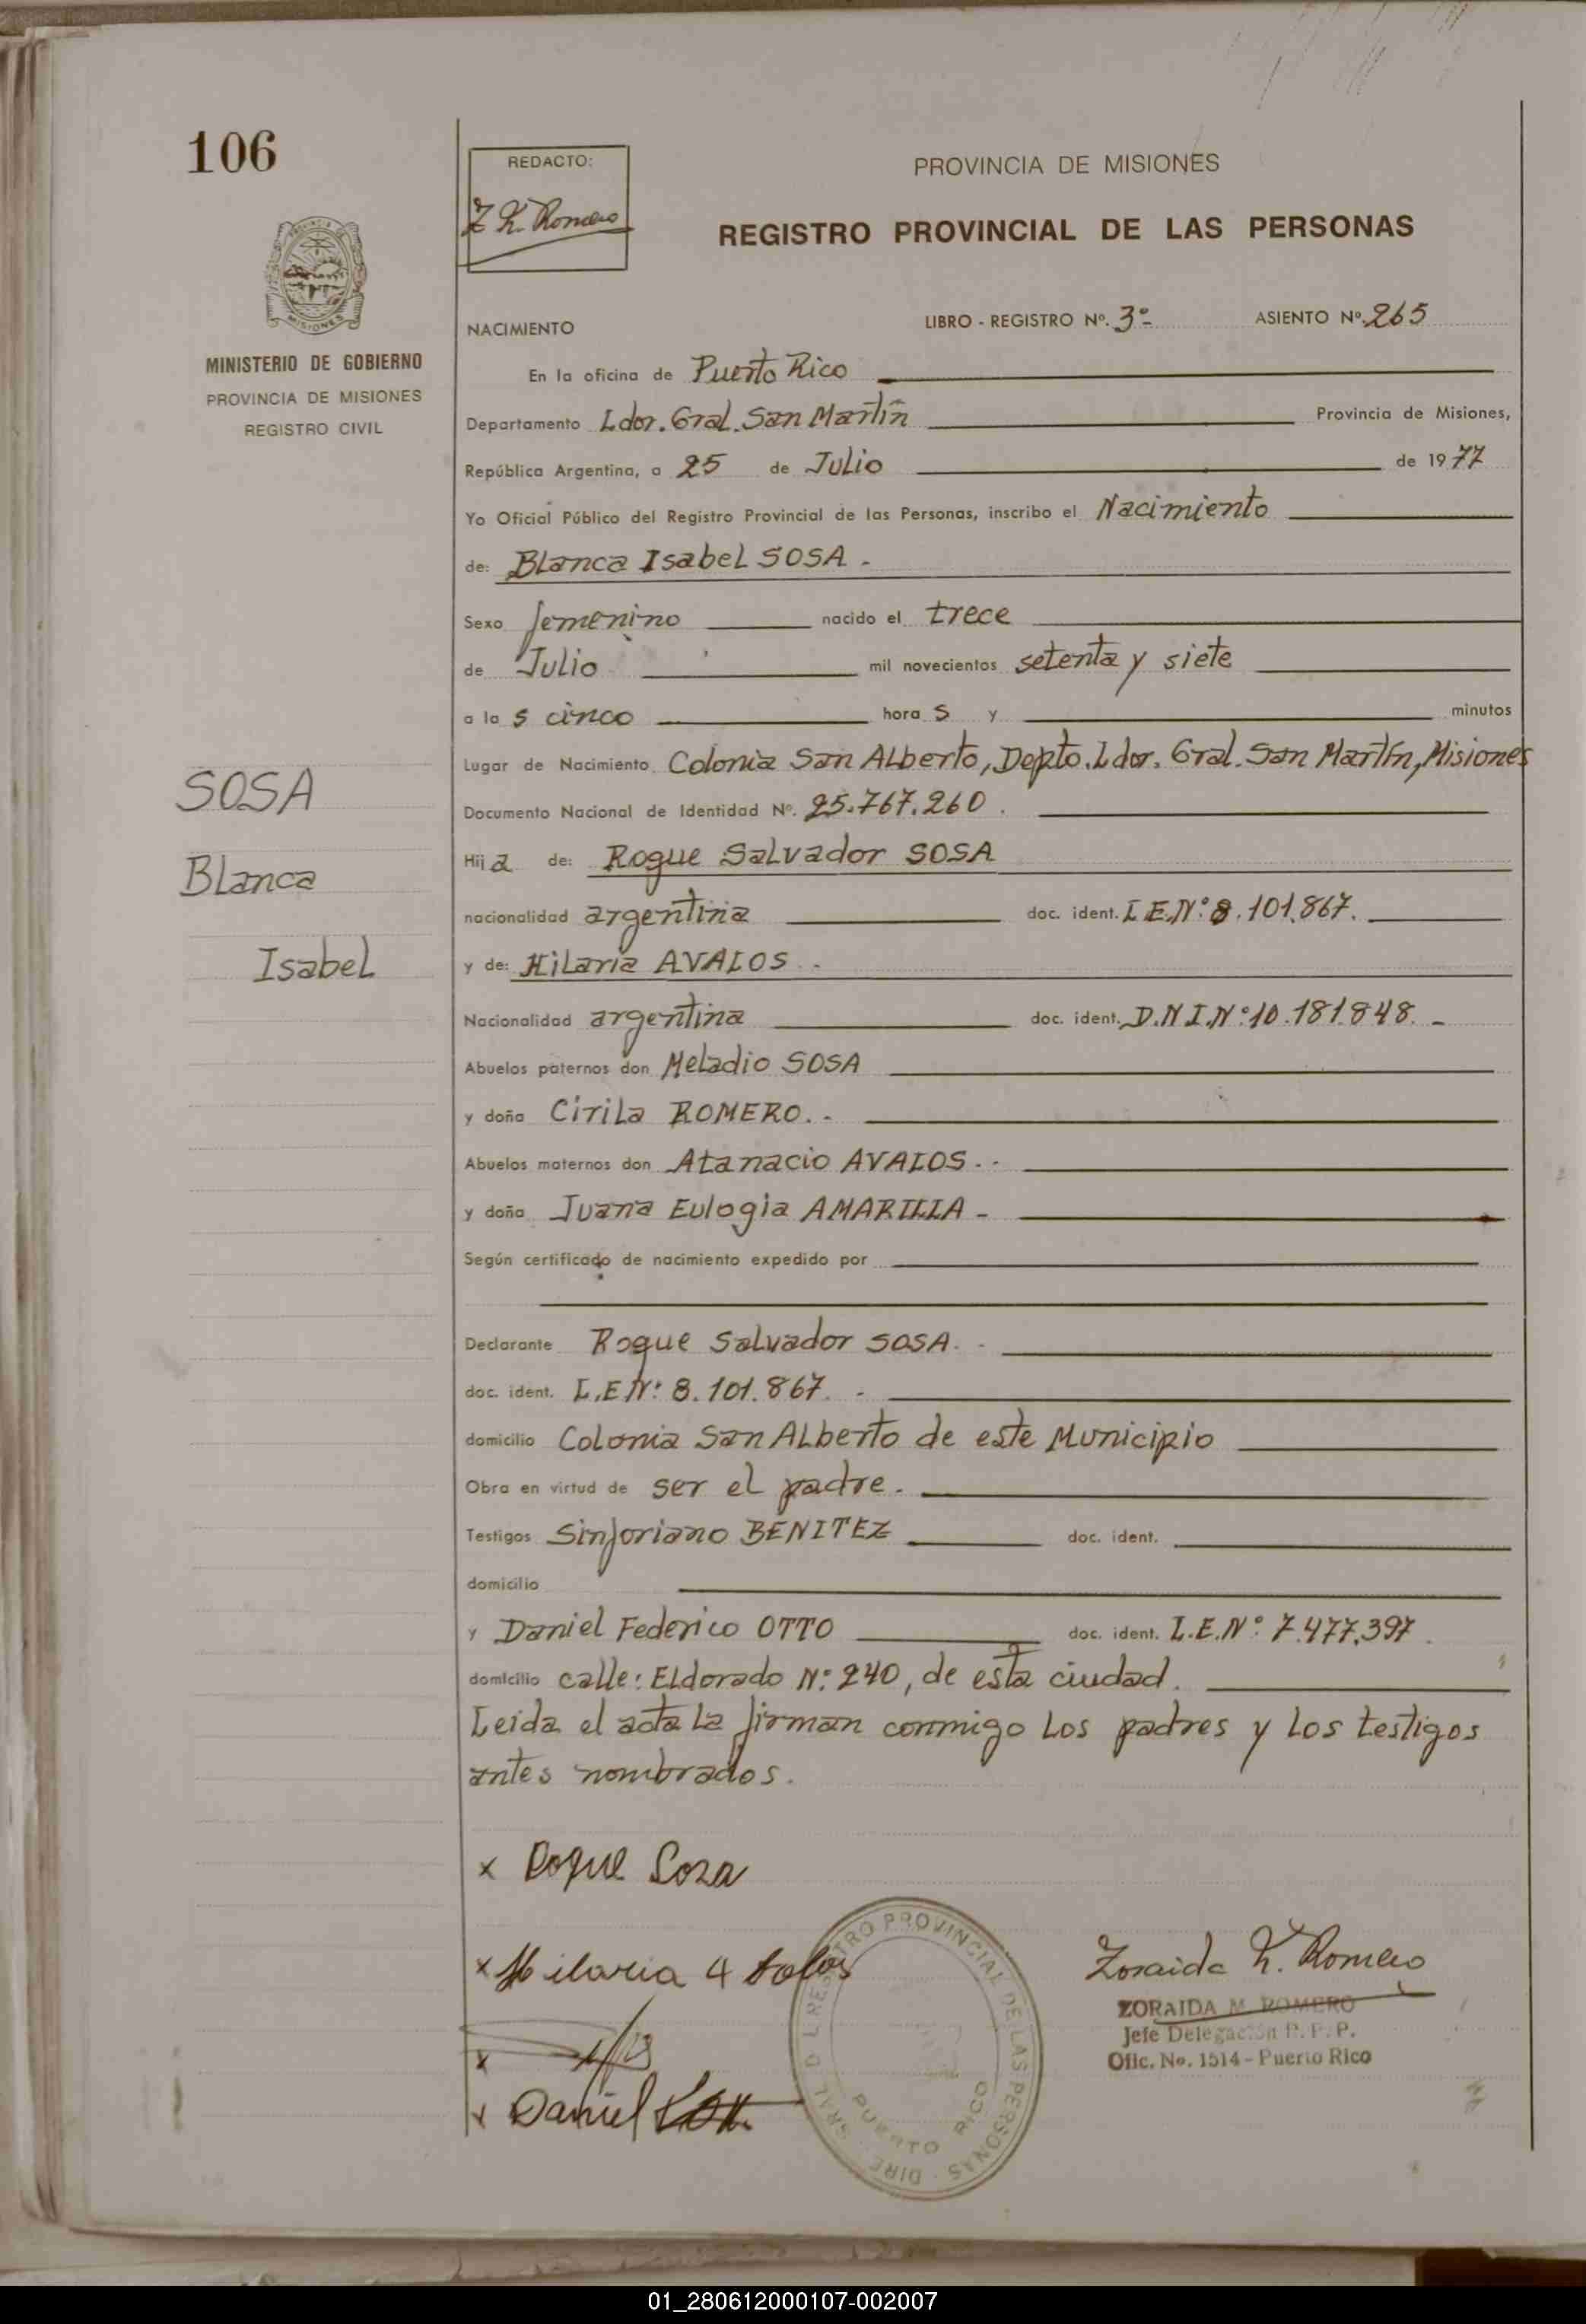 106
REDACTO:
Z M. Romero
PROVINCIA DE MISIONES
REGISTRO PROVINCIAL DE LAS PERSONAS
MISIONES
MINISTERIO DE GOBIERNO
PROVINCIA DE MISIONES
REGISTRO CIVIL
NACIMIENTO LIBRO - REGISTRO Nº. 3º ASIENTO Nº 265
En la oficina de Puerto Rico
Departamento Ldor. Gral. San Martín Provincia de Misiones,
República Argentina, a 25 de Julio de 1977
Yo Oficial Público del Registro Provincial de las Personas, inscribo el Nacimiento
de: Blanca Isabel SOSA.
Sexo femenino nacido el trece
de Julio mil novecientos setenta y siete
a las cinco horas y minutos
Lugar de Nacimiento Colonia San Alberto, Depto. Ldor. Gral. San Martín, Misiones
Documento Nacional de Identidad Nº. 25.767.260.
Hija de: Roque Salvador SOSA
nacionalidad argentina doc. ident. L E.Nº: 8.101.867.
y de: Hilaria AVALOS.-
Nacionalidad argentina doc. ident. D.N I.Nº:10.181.848.-
Abuelos paternos don Meladio SOSA
y doña Cirila ROMERO.-
Abuelos maternos don Atanacio AVALOS.-
y doña Juana Eulogia AMARILLA-
Según certificado de nacimiento expedido por
Declarante Roque Salvador SOSA.-
doc. ident. L.E Nº: 8.101.867.-
domicilio Colonia San Alberto de este Municipio
Obra en virtud de ser el padre.
Testigos Sinforiano BENITEZ doc. ident.
domicilio
y Daniel Federico OTTO doc. ident. L.E.Nº: 7.477.397.
domicilio calle: Eldorado Nº: 240, de esta ciudad.
Leída el acta la firman conmigo los padres y los testigos
antes nombrados.
SOSA
Blanca
Isabel
x Roque Sosa
x Hilaria Abalos
x
x Daniel Otto
DIRE GRAL D L REGISTRO PROVINCIAL DE LAS PERSONAS
PUERTO RICO
Zoraida M. Romero
ZORAIDA M. ROMERO
Jefe Delegación R. P. P.
Ofic. No. 1514 - Puerto Rico
01_280612000107-002007